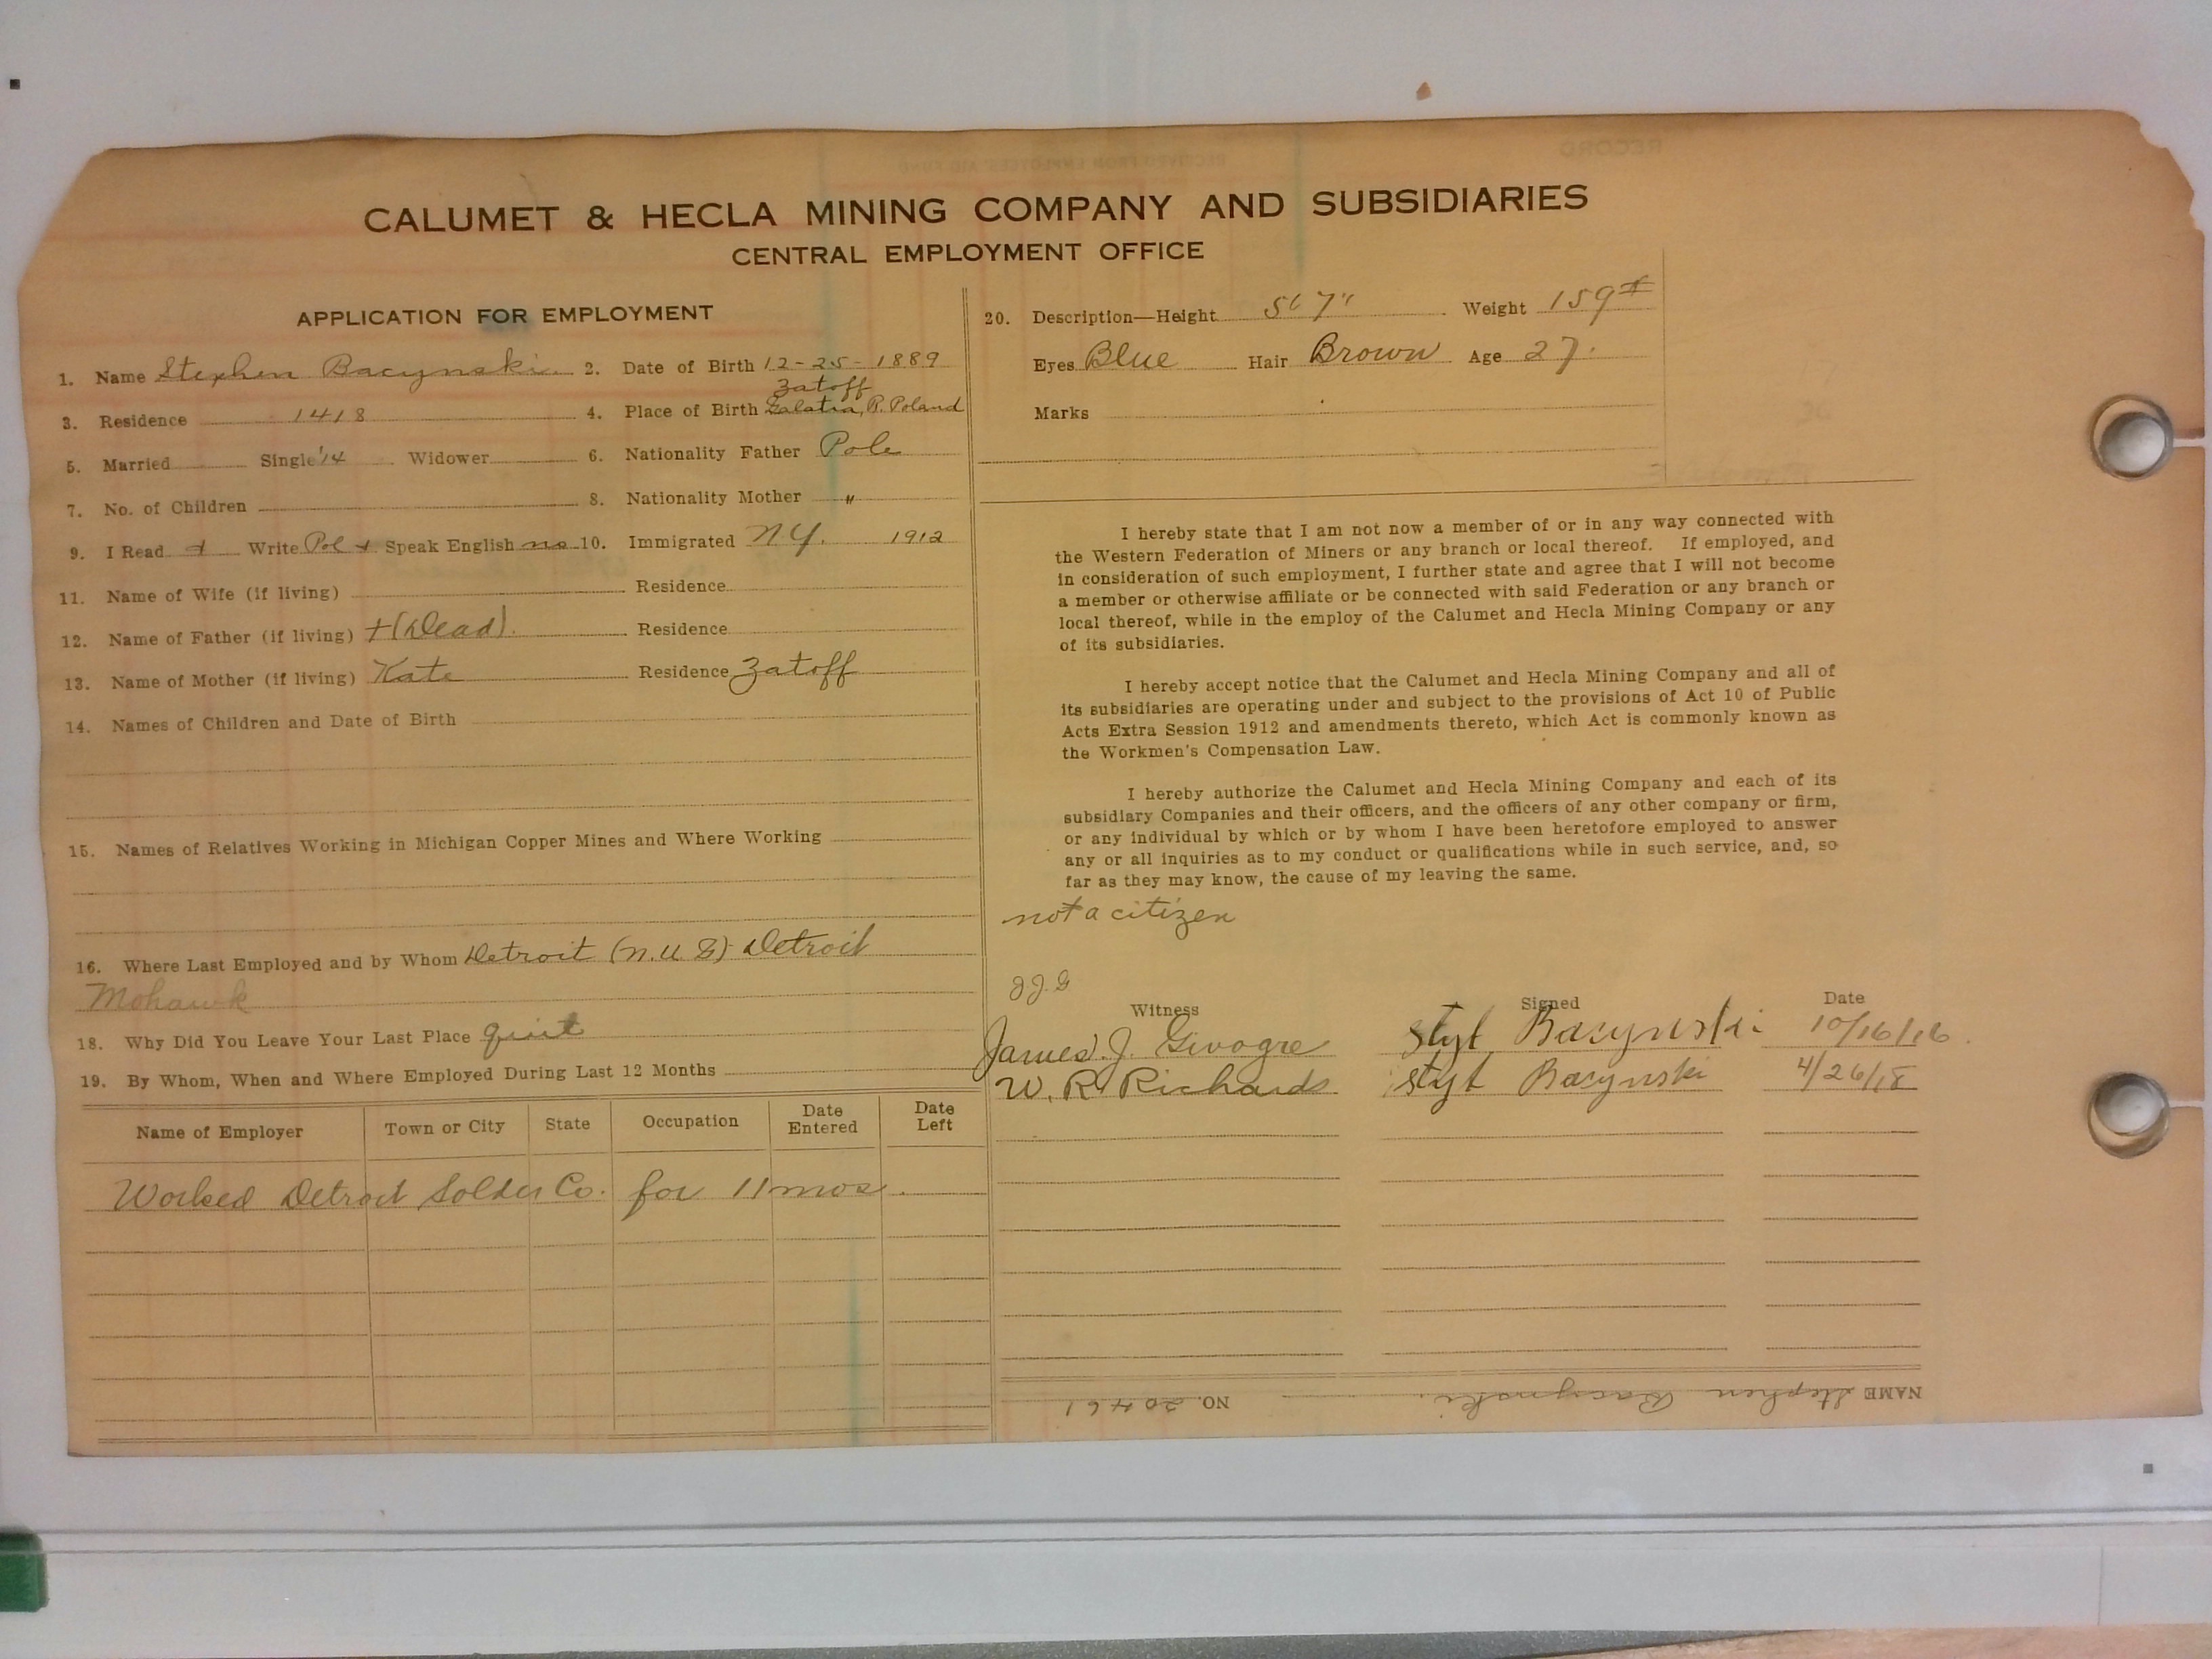 CALUMET & HECLA MINING COMPANY AND SUBSIDIARIES
CENTRAL EMPLOYMENT OFFICE
APPLICATION FOR EMPLOYMENT
1. Name Stephen Bacynski 2. Date of Birth 12-25-1889
Zatoff
3. Residence 1418 4. Place of Birth Galatia, R. Poland
5. Married Single '14 Widower 6. Nationality Father Pole
7. No. of Children 8. Nationality Mother "
9. I Read + Write Pol + Speak English no 10. Immigrated N.Y. 1912
11. Name of Wife (if living) Residence
12. Name of Father (if living) +(Dead). Residence
13. Name of Mother (if living) Kate Residence Zatoff
14. Names of Children and Date of Birth
15. Names of Relatives Working in Michigan Copper Mines and Where Working
16. Where Last Employed and by Whom Detroit (N.U.S) Detroit
Mohawk
18. Why Did You Leave Your Last Place quit
19. By Whom, When and Where Employed During Last 12 Months
Name of Employer Town or City State Occupation Date Entered Date Left
Worked Detroit Solder Co. for 11 mos.
20. Description—Height 5' 7" Weight 159#
Eyes Blue Hair Brown Age 27.
Marks
I hereby state that I am not now a member of or in any way connected with
the Western Federation of Miners or any branch or local thereof. If employed, and
in consideration of such employment, I further state and agree that I will not become
a member or otherwise affiliate or be connected with said Federation or any branch or
local thereof, while in the employ of the Calumet and Hecla Mining Company or any
of its subsidiaries.
I hereby accept notice that the Calumet and Hecla Mining Company and all of
its subsidiaries are operating under and subject to the provisions of Act 10 of Public
Acts Extra Session 1912 and amendments thereto, which Act is commonly known as
the Workmen's Compensation Law.
I hereby authorize the Calumet and Hecla Mining Company and each of its
subsidiary Companies and their officers, and the officers of any other company or firm,
or any individual by which or by whom I have been heretofore employed to answer
any or all inquiries as to my conduct or qualifications while in such service, and, so
far as they may know, the cause of my leaving the same.
not a citizen
JJG
Witness Signed Date
James J. Givogre Styf Bacynski 10/16/16
W. R. Richards Styf Bacynski 4/26/18
NAME Stephen Bacynski. NO. 20461